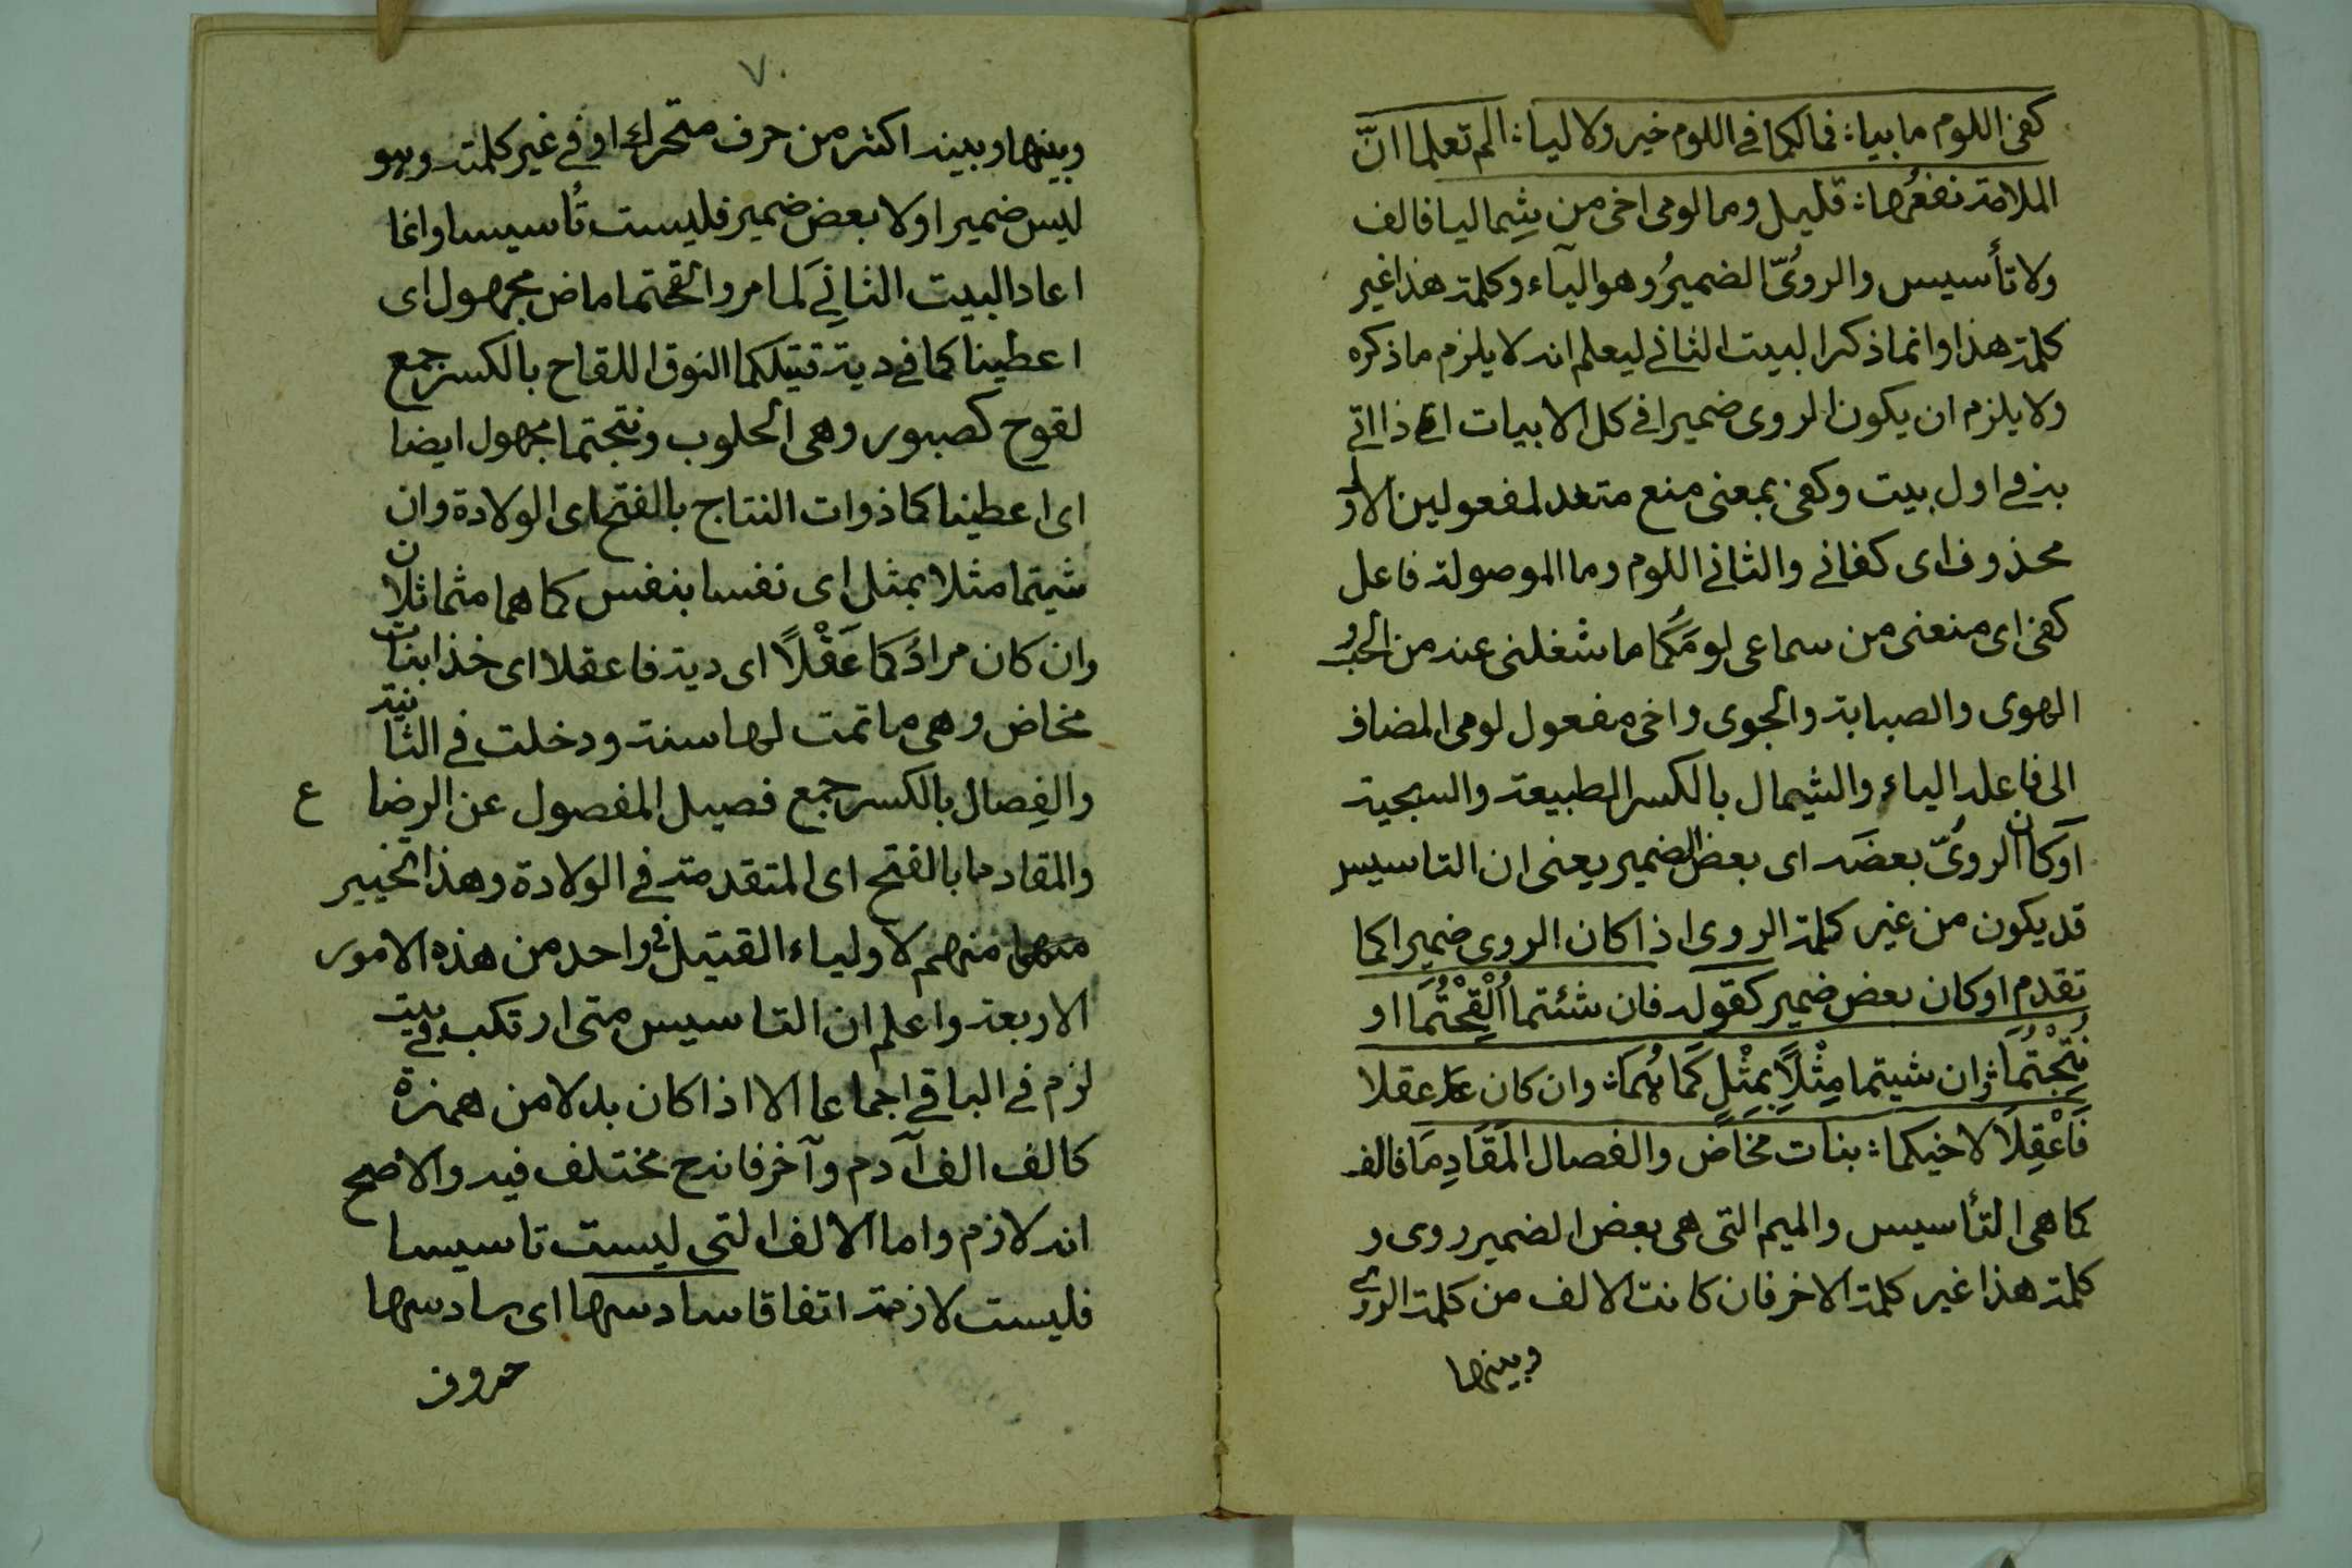 كفى اللوم مابيا؞ فمالكما في اللوم خير ولاليا؞ الم تعلما انّ
الملامة نفعُها؞ قليل وما لومى اخى من شِماليا فالف
ولا تأسيس والروىّ الضميرُ وهو اليآء وكلمة هذا غير
كلمة هذا وانما ذكر البيت الثاني ليعلم انه لا يلزم ما ذكره
ولا يلزم ان يكون الروى ضميرا في كل الابيات اى ذا اتى
به في اول بيت وكفى بمعنى منع متعد لمفعولين الاول
محذوف اى كفاني والثاني اللوم وما الموصولة فاعل
كفى اى منعنى من سماعى لومَكُما ما شغلنى عنه من الحب و
الهوى والصبابة والجوى واخى مفعول لومى المضاف
الى فاعله الياء والشِمال بالكسر الطبيعة والسجية
اَوكان الروىّ بعضَه اى بعض الضمير يعنى ان التاسيس
قد يكون من غير كلمة الروى اذا كان الروى ضميرا كما
تقدم او كان بعض ضمير كقوله فان شئتما اُلْقِحْتُمَا او
نُتِجْتُمَا؞ وان شيتما مِثْلًا بِمِثْلٍ كَمَا هُمَا؞ وان كان عقلا
فَاعْقِلَا لاخيكما؞ بنات مخَاض والفصال المَقَادِمَا فالف
كما هى التأسيس والميم التى هى بعض الضمير روى و
كلمة هذا غير كلمة الاخر فان كانت الالف من كلمة الروى
وبينها
٧٠
وبينها وبينه اكثر من حرف متحرك او في غير كلمته وهو
ليس ضميرا ولا بعض ضمير فليست تأسيسا وانما
اعاد البيت الثانِي لَما مر والقحتما ماض مجهول اى
اعطيناكما في دية قتيلكما النوق اللقاح بالكسر جمع
لقوح كصبور وهى الحلوب ونتجتما مجهول ايضا
اى اعطيناكما ذوات النتاج بالفتح اى الولادة وان
شيتما مثلا بمثل اى نفسا بنفس كما هما متماثلان
وان كان مرادُكما عَقْلًا اى دية فاعقلا اى خذا بنات
مخاض وهى ما تمت لها سنة ودخلت في الثانية
والفِصال بالكسر جمع فصيل المفصول عن الرضاع
والمقادما بالفتح اى المتقدمة في الولادة وهذا تخيير
منهما منهم لاولياء القتيل في واحد من هذه الامور
الاربعة واعلم ان التاسيس متى ارتكب في بيت
لزم في الباقي اجماعا الا اذا كان بدلا من همزة
كالف الف آدم وآخر فانه ح مختلف فيه والاصح
انه لازم واما الالف التى ليست تاسيسا
فليست لازمة اتفاقا سادسها اى سادسها
حروف